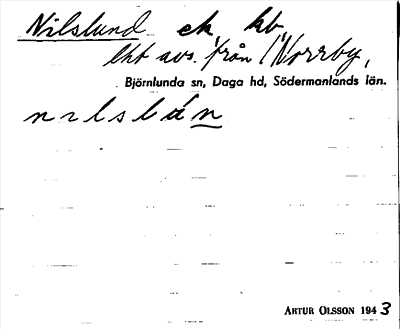 Nilslund ek, kb,
lht avs. från 1/1 Norrby,
Björnlunda sn, Daga hd, Södermanlands län.
nilslán
ARTUR OLSSON 1943